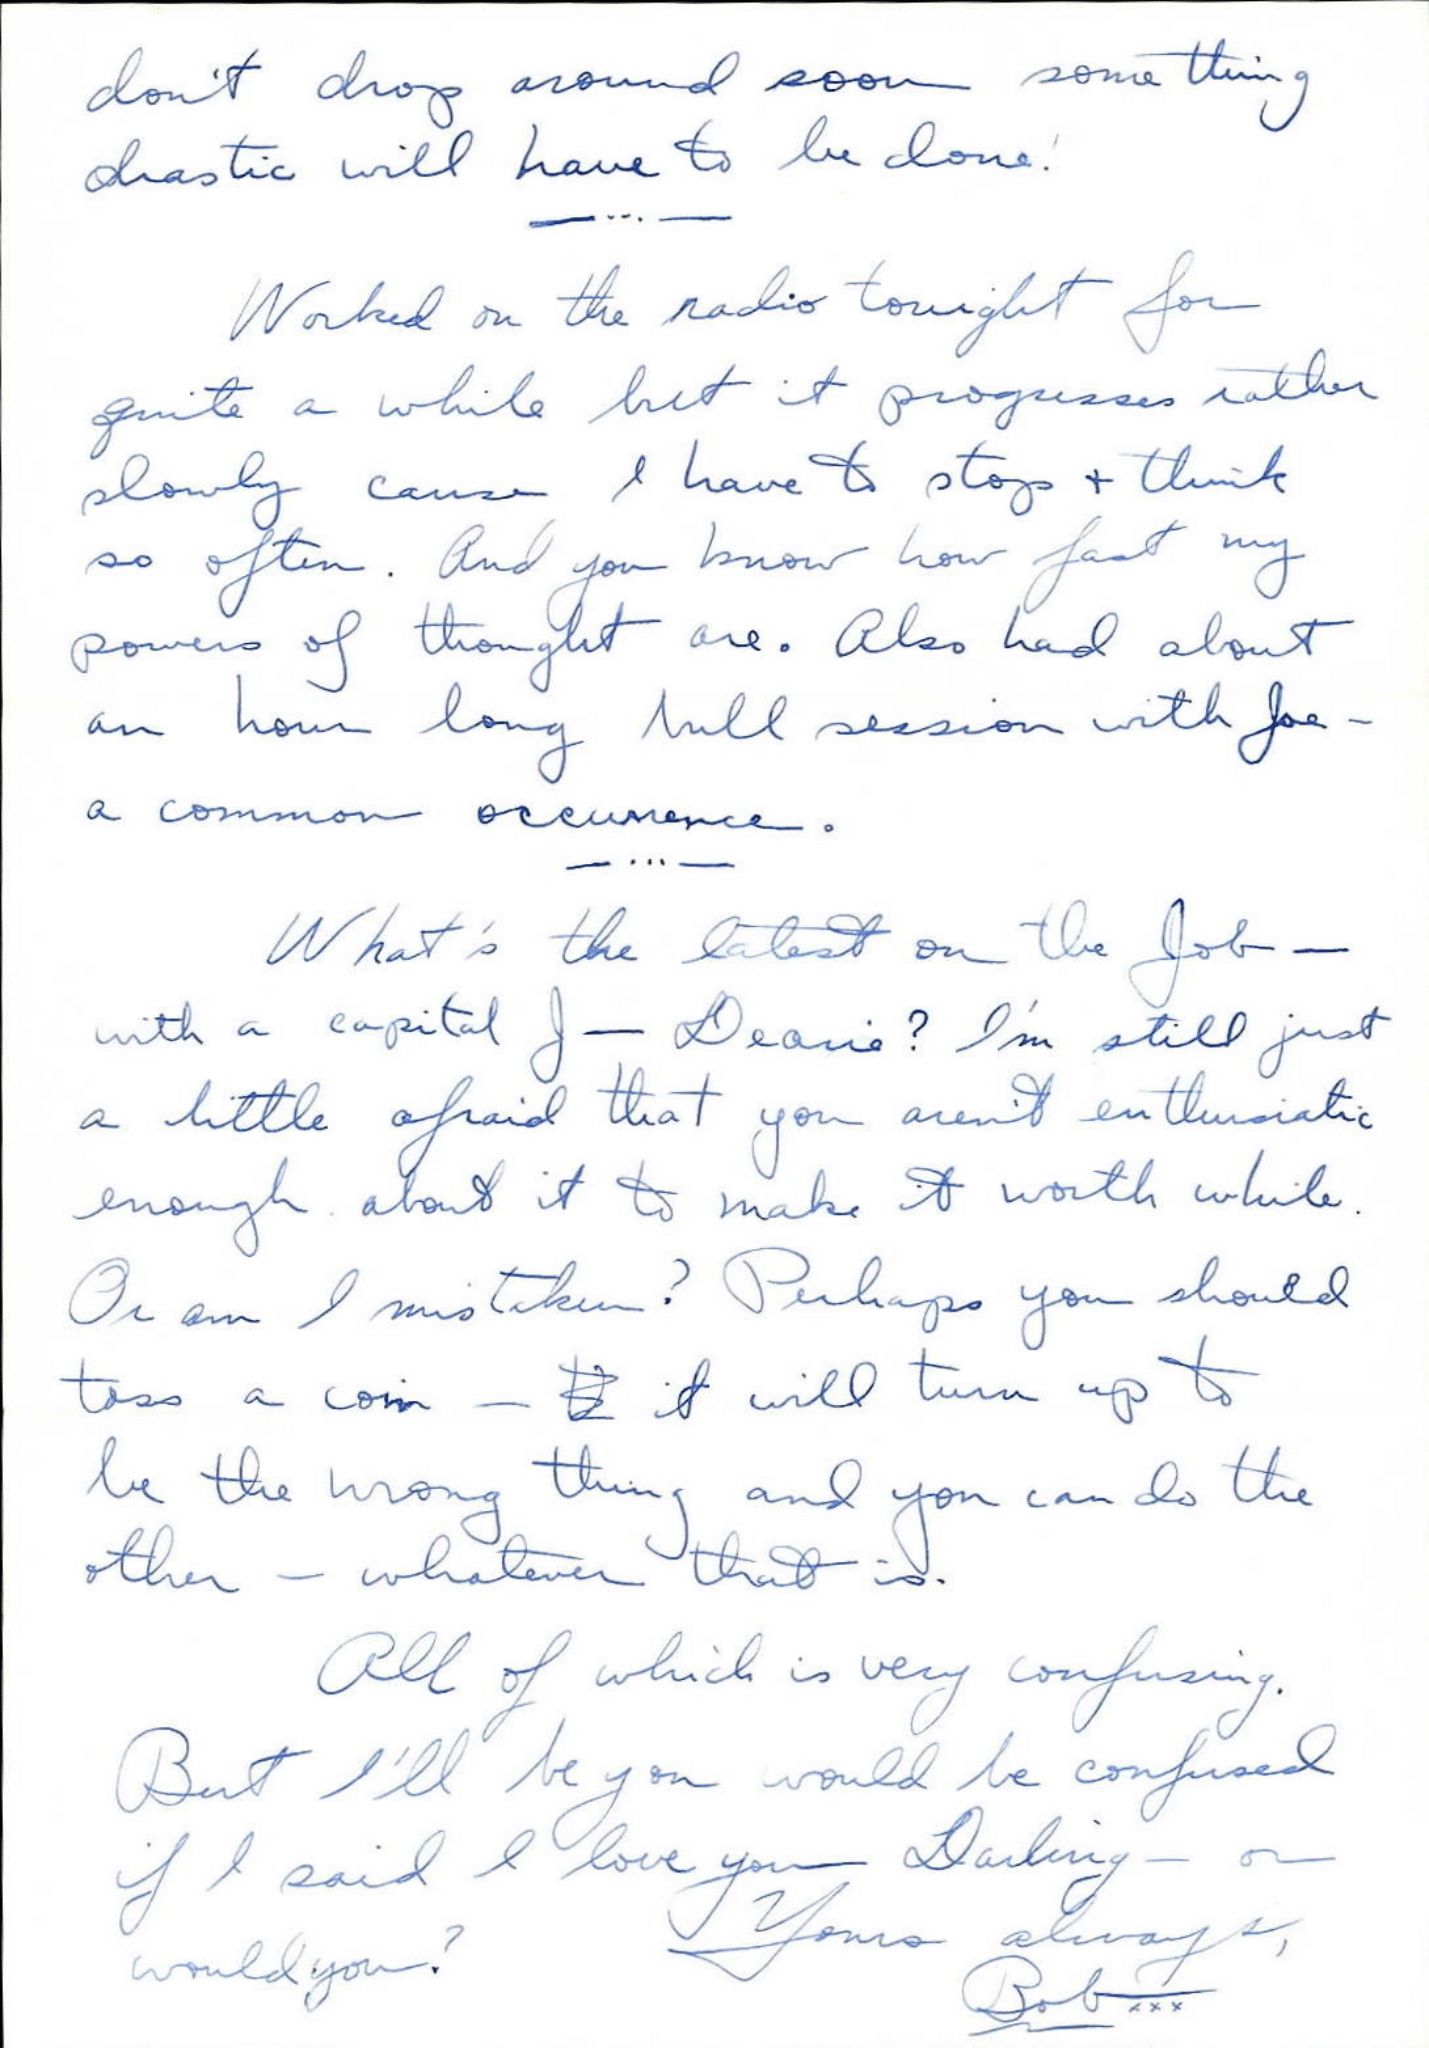 don't drop around soon something
drastic will have to be done!
— ... —
Worked on the radio tonight for
quite a while but it progresses rather
slowly cause I have to stop + think
so often. And you know how fast my
powers of thought are. Also had about
an hour long bull session with Joe -
a common occurrence.
— ... —
What's the latest on the Job —
with a capital J — Dearie? I'm still just
a little afraid that you aren't enthusiatic
enough about it to make it worth while.
Or am I mistaken? Perhaps you should
toss a coin — it will turn up to
be the wrong thing and you can do the
other — whatever that is.
All of which is very confusing.
But I'll be you would be confused
if I said I love you Darling — or
would you?
Yours always,
Bob xxx